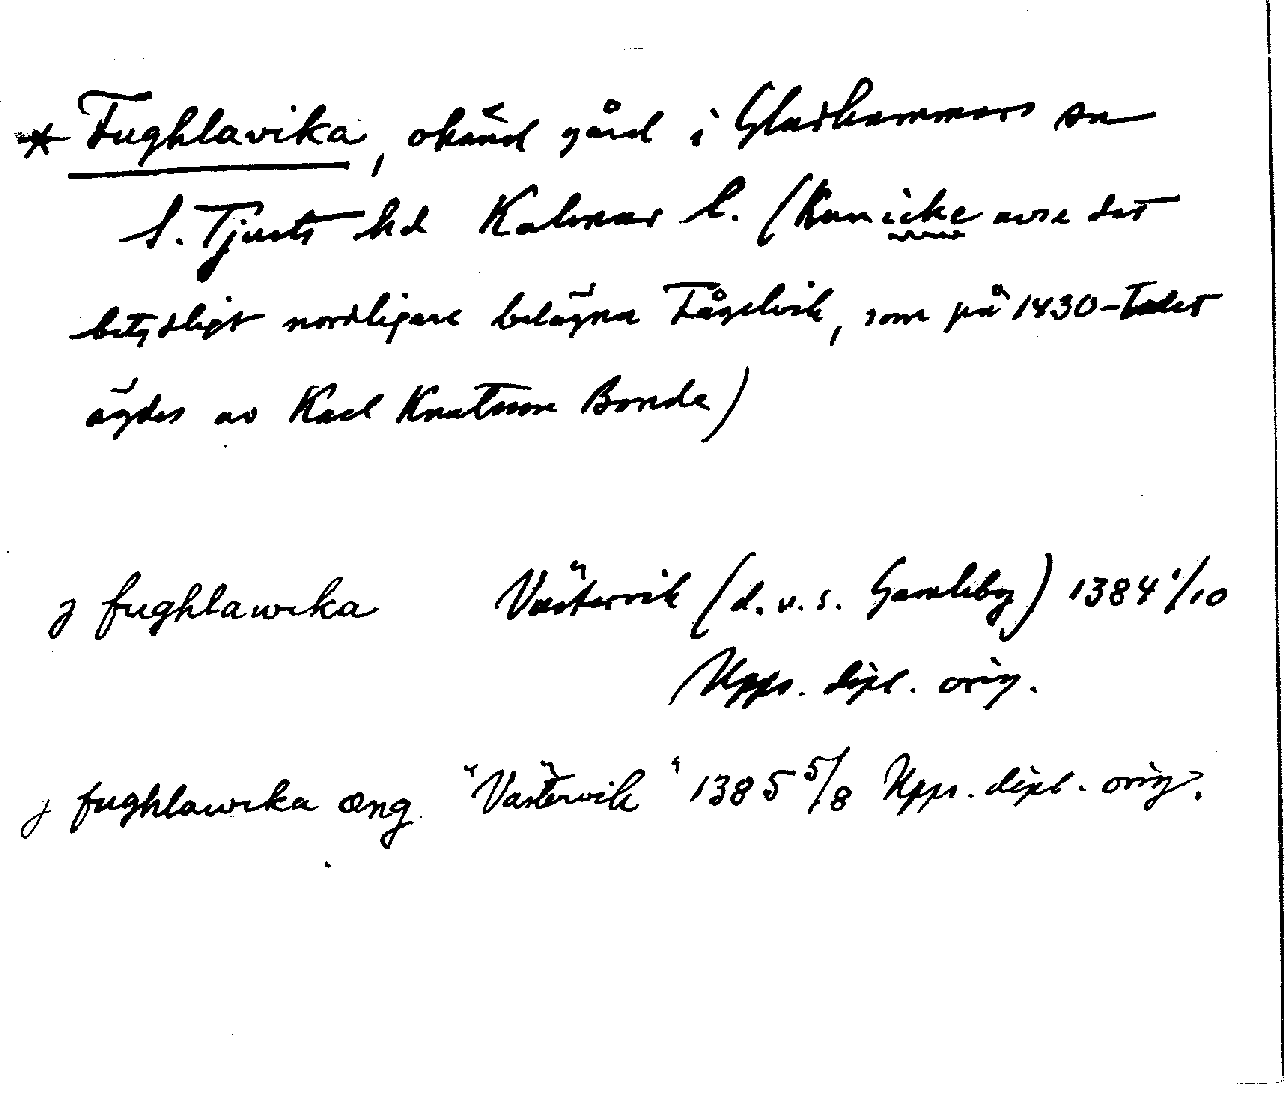 * Fughlavika, okänd gård i Gladhammars sn
S. Tjusts hd Kalmar l. (Kan icke avse det
betydligt nordligare belägna Fågelvik, som på 1430-talet
ägdes av Karl Knutsson Bonde)
j fughlawika Västervik (d.v.s. Gamleby) 1384 1/10
Upps. dipl. orig.
j fughlawika æng "Västervik" 1385 5/8 Upps. dipl. orig.